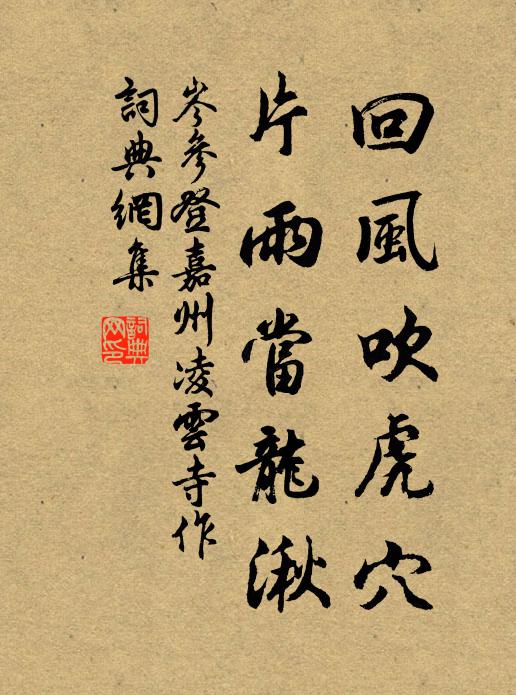 回風吹虎穴
片雨當龍湫
岑參登嘉州凌雲寺作
詞典網集
詞典网印